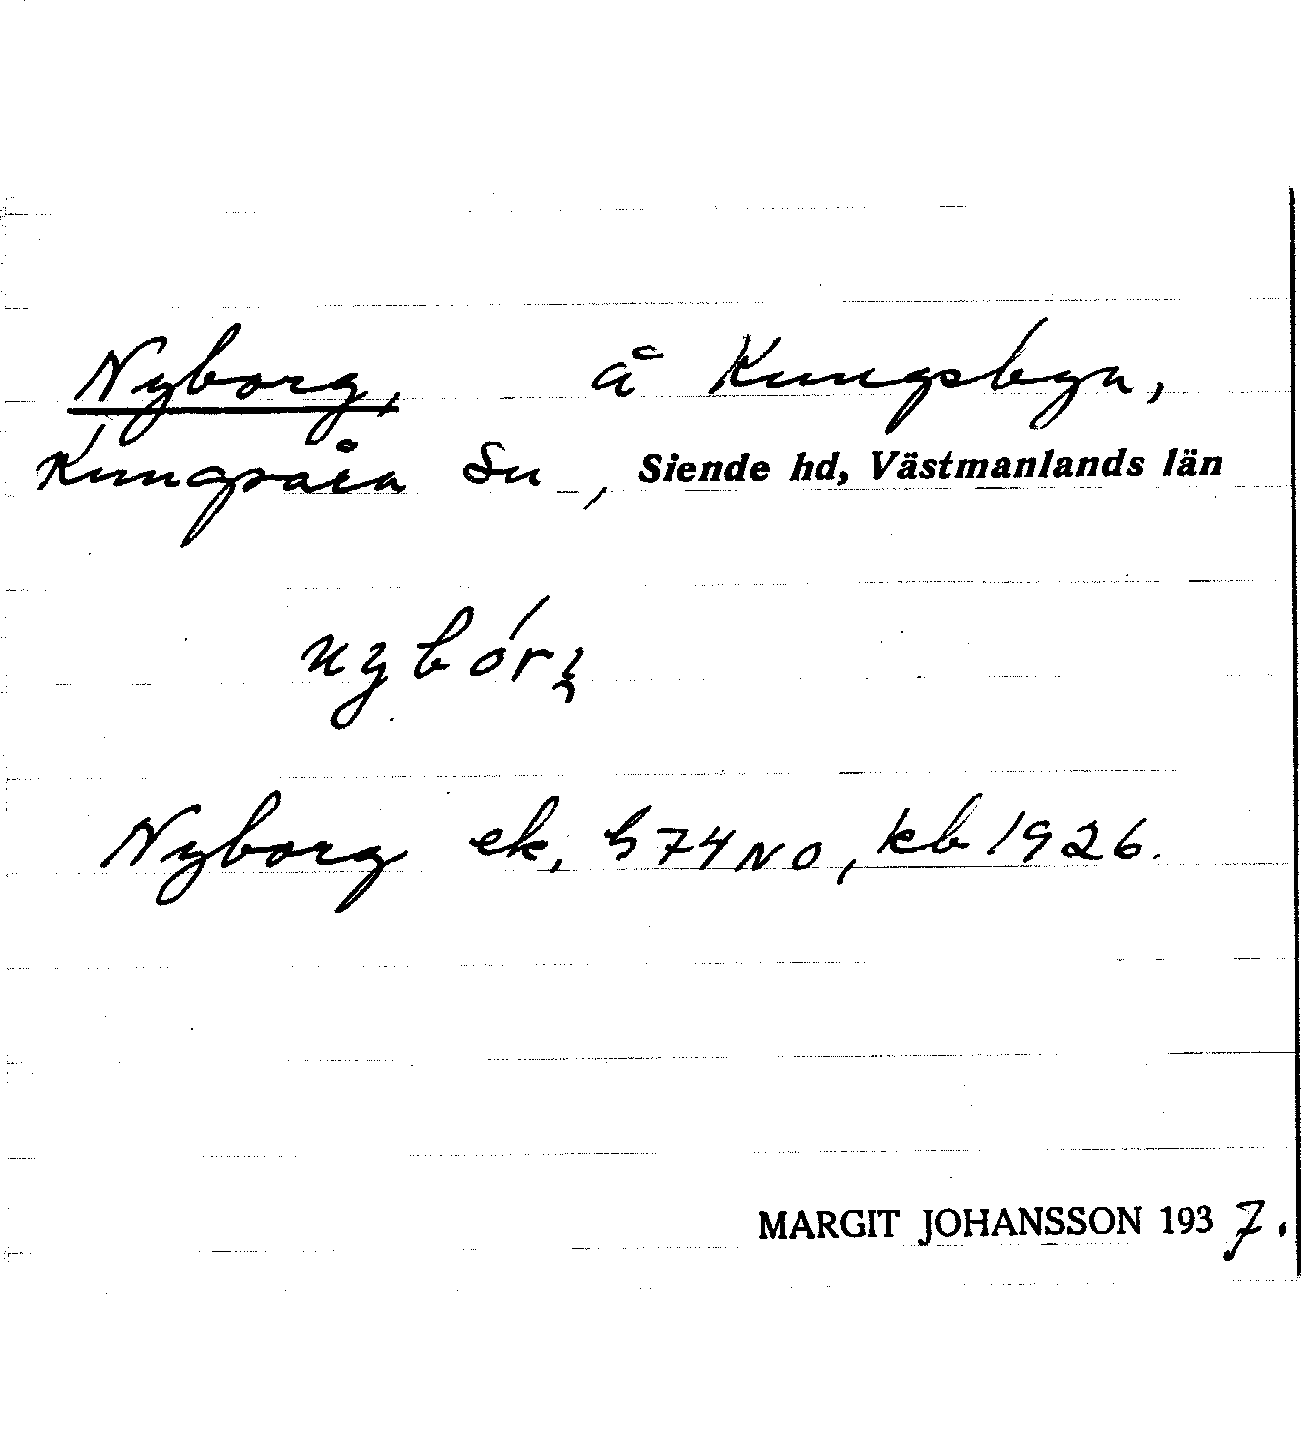 Nyborg, å Kungsbyn,
Kungsåra Sn, Siende hd, Västmanlands län
nybórj
Nyborg ek, h 74 NO, kb 1926.
MARGIT JOHANSSON 1937.